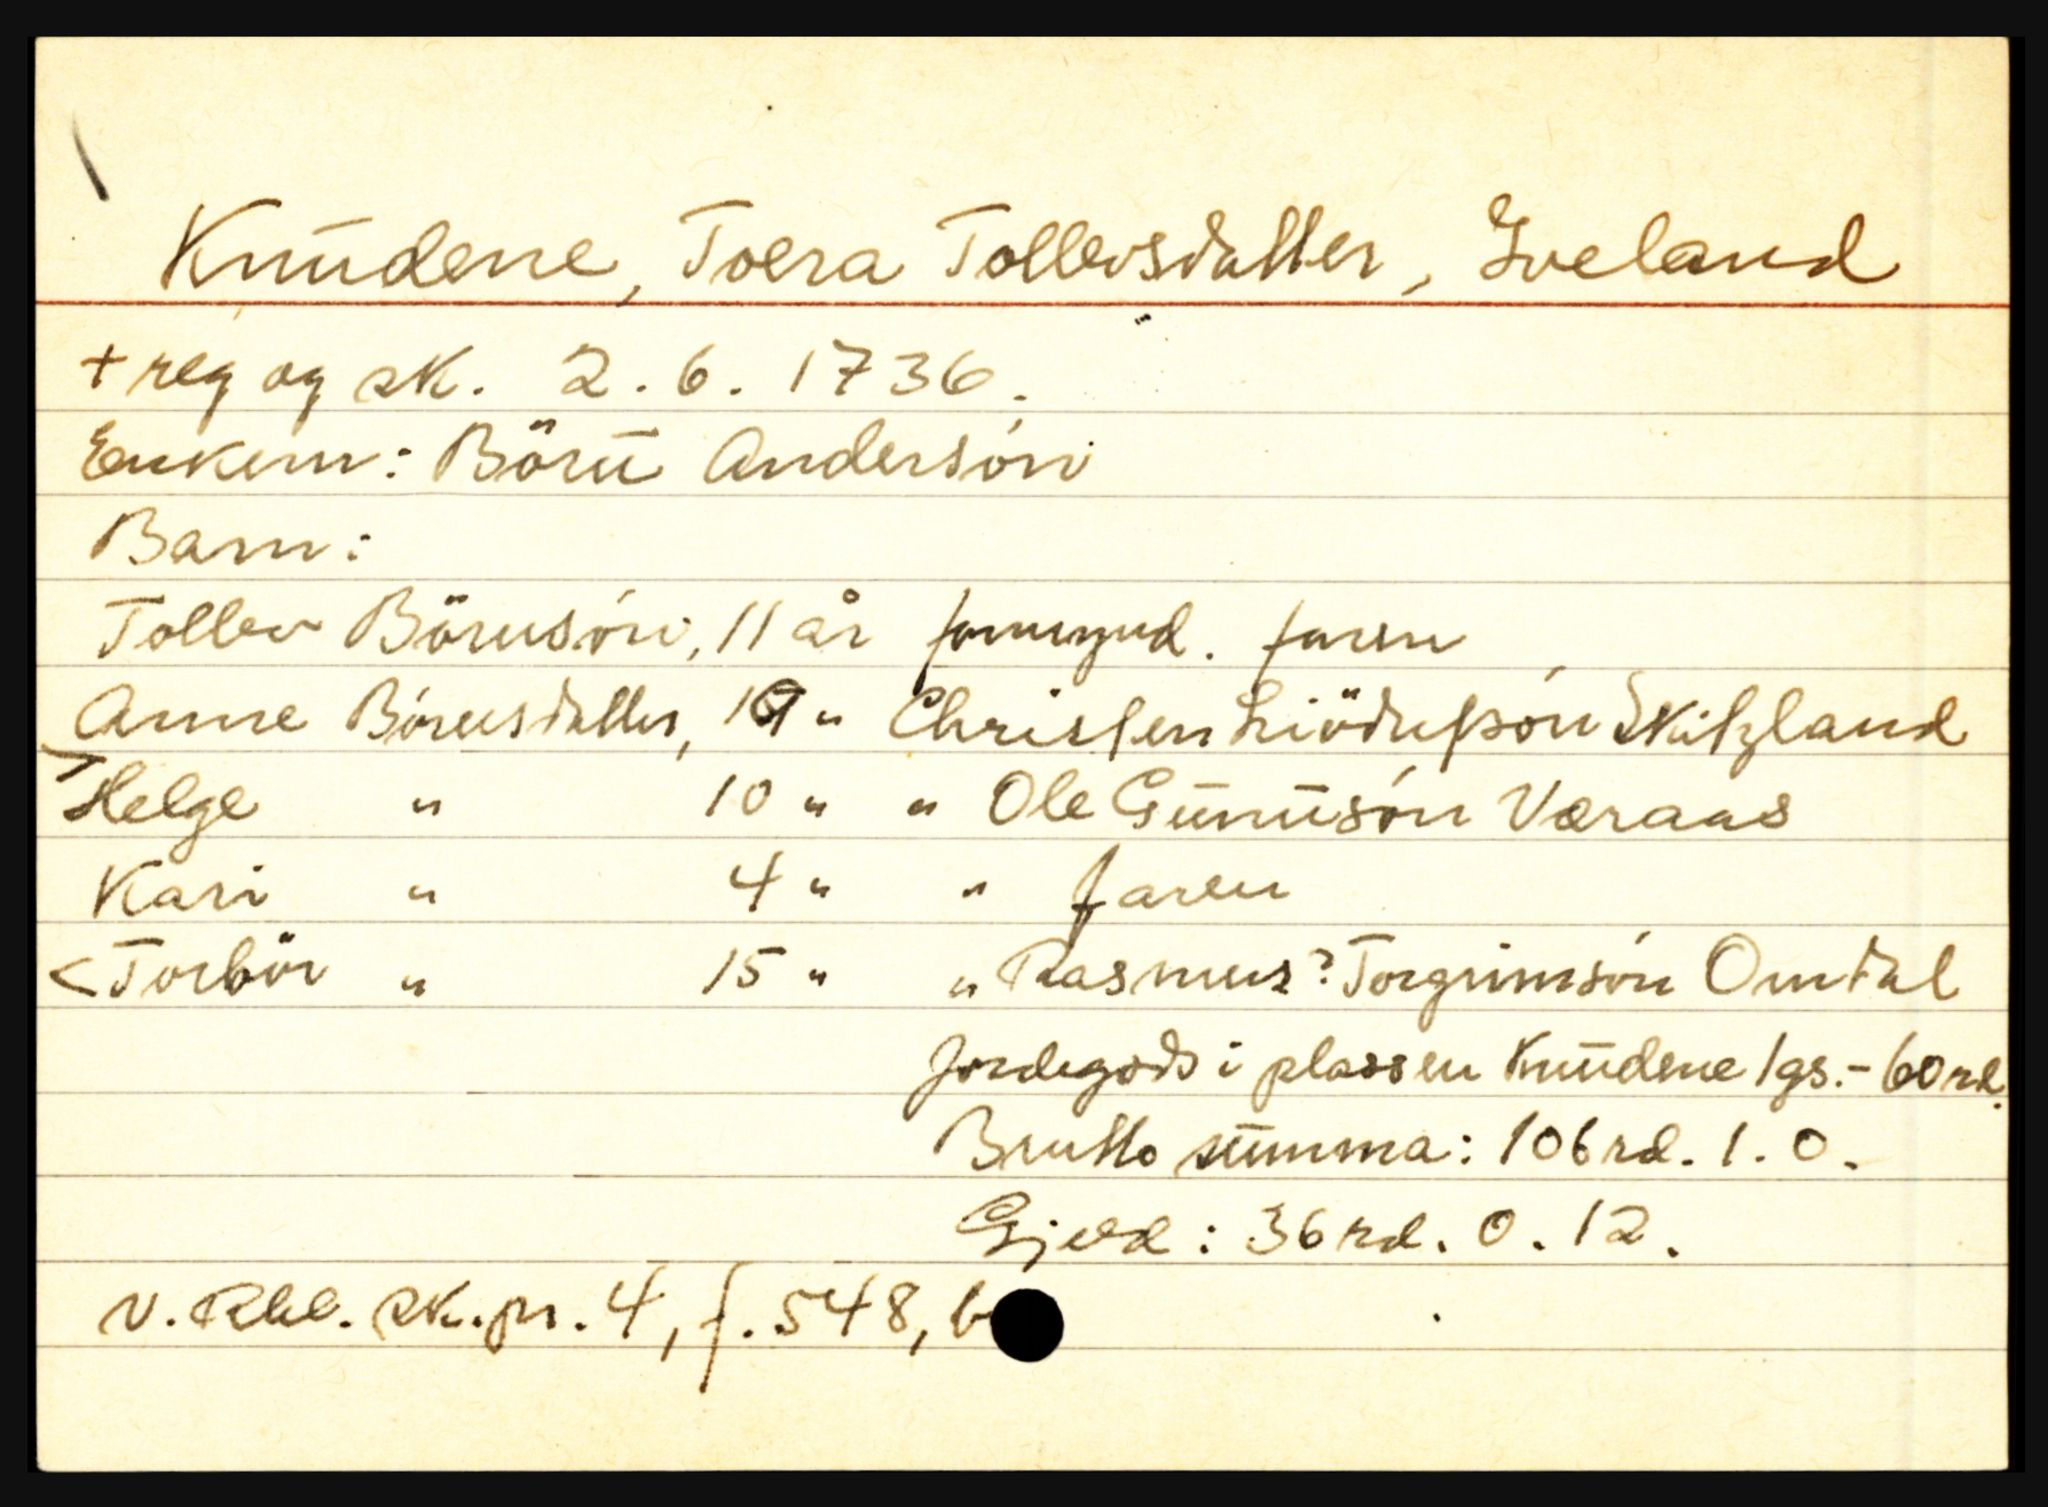 Knudene, Toera Tollevsdatter, Iveland
+ reg og sk. 2.6.1736.
Enkem: Böru Andersón
Barn:
Tollev Börusón, 11 år formynd. faren
Anne Börusdatter, 19 " Christen Liödufsón Skitzland
Helge " 10 " " Ole Gunusón Væraas
Kari " 4 " " faren
< Torbör " 15 " " Rasmus? Torgrimsón Omdal
Jordegods i plassen Knudene 1 gs. - 60 rd.
Brutto summa: 106 rd. 1. 0.
Gjeld: 36 rd. 0. 12.
v. Rbl. sk.pr. 4, f. 548, b